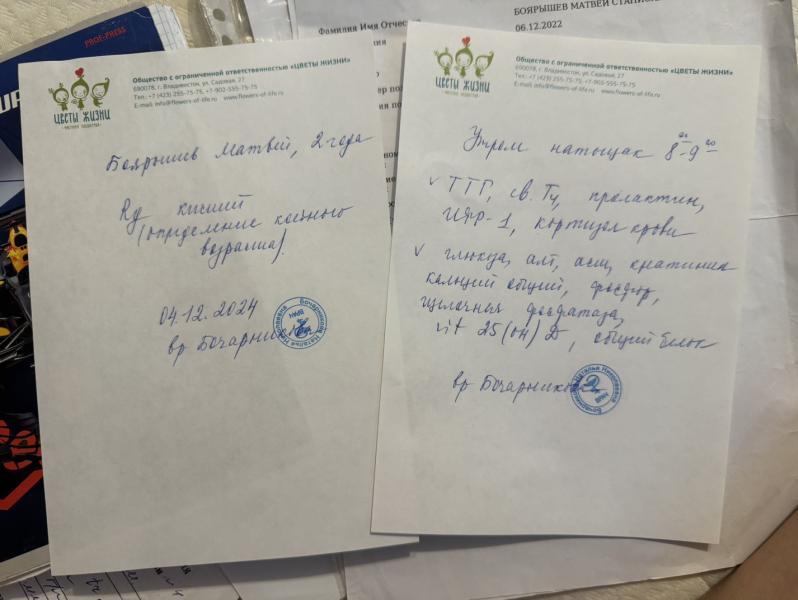 PROF-PRESS
Фамилия Имя Отчес
БОЯРЫШЕВ МАТВЕЙ СТАНИСЛ
06.12.2022
ЦВЕТЫ ЖИЗНИ
Общество с ограниченной ответственностью «ЦВЕТЫ ЖИЗНИ»
690078, г. Владивосток, ул. Садовая, 27
Тел.: +7 (423) 255-75-75, +7-902-555-75-75
E-mail: info@flowers-of-life.ru www.flowers-of-life.ru
Боярышев Матвей, 2 года
Rg кистей
(определение костного
возраста).
04.12.2024
вр Бочарникова
Бочарникова Наталья Николаевна
ВРАЧ
ЦВЕТЫ ЖИЗНИ
Общество с ограниченной ответственностью «ЦВЕТЫ ЖИЗНИ»
690078, г. Владивосток, ул. Садовая, 27
Тел.: +7 (423) 255-75-75, +7-902-555-75-75
E-mail: info@flowers-of-life.ru www.flowers-of-life.ru
Утром натощак 8⁰⁰-9⁰⁰
v ТТГ, св. Т4, пролактин,
ИФР-1, кортизол крови
v глюкоза, алт, аст, креатинин
кальций общий, фосфор,
щелочная фосфатаза,
vit 25(он) D, общий белок
вр Бочарникова
Бочарникова Наталья Николаевна
ВРАЧ